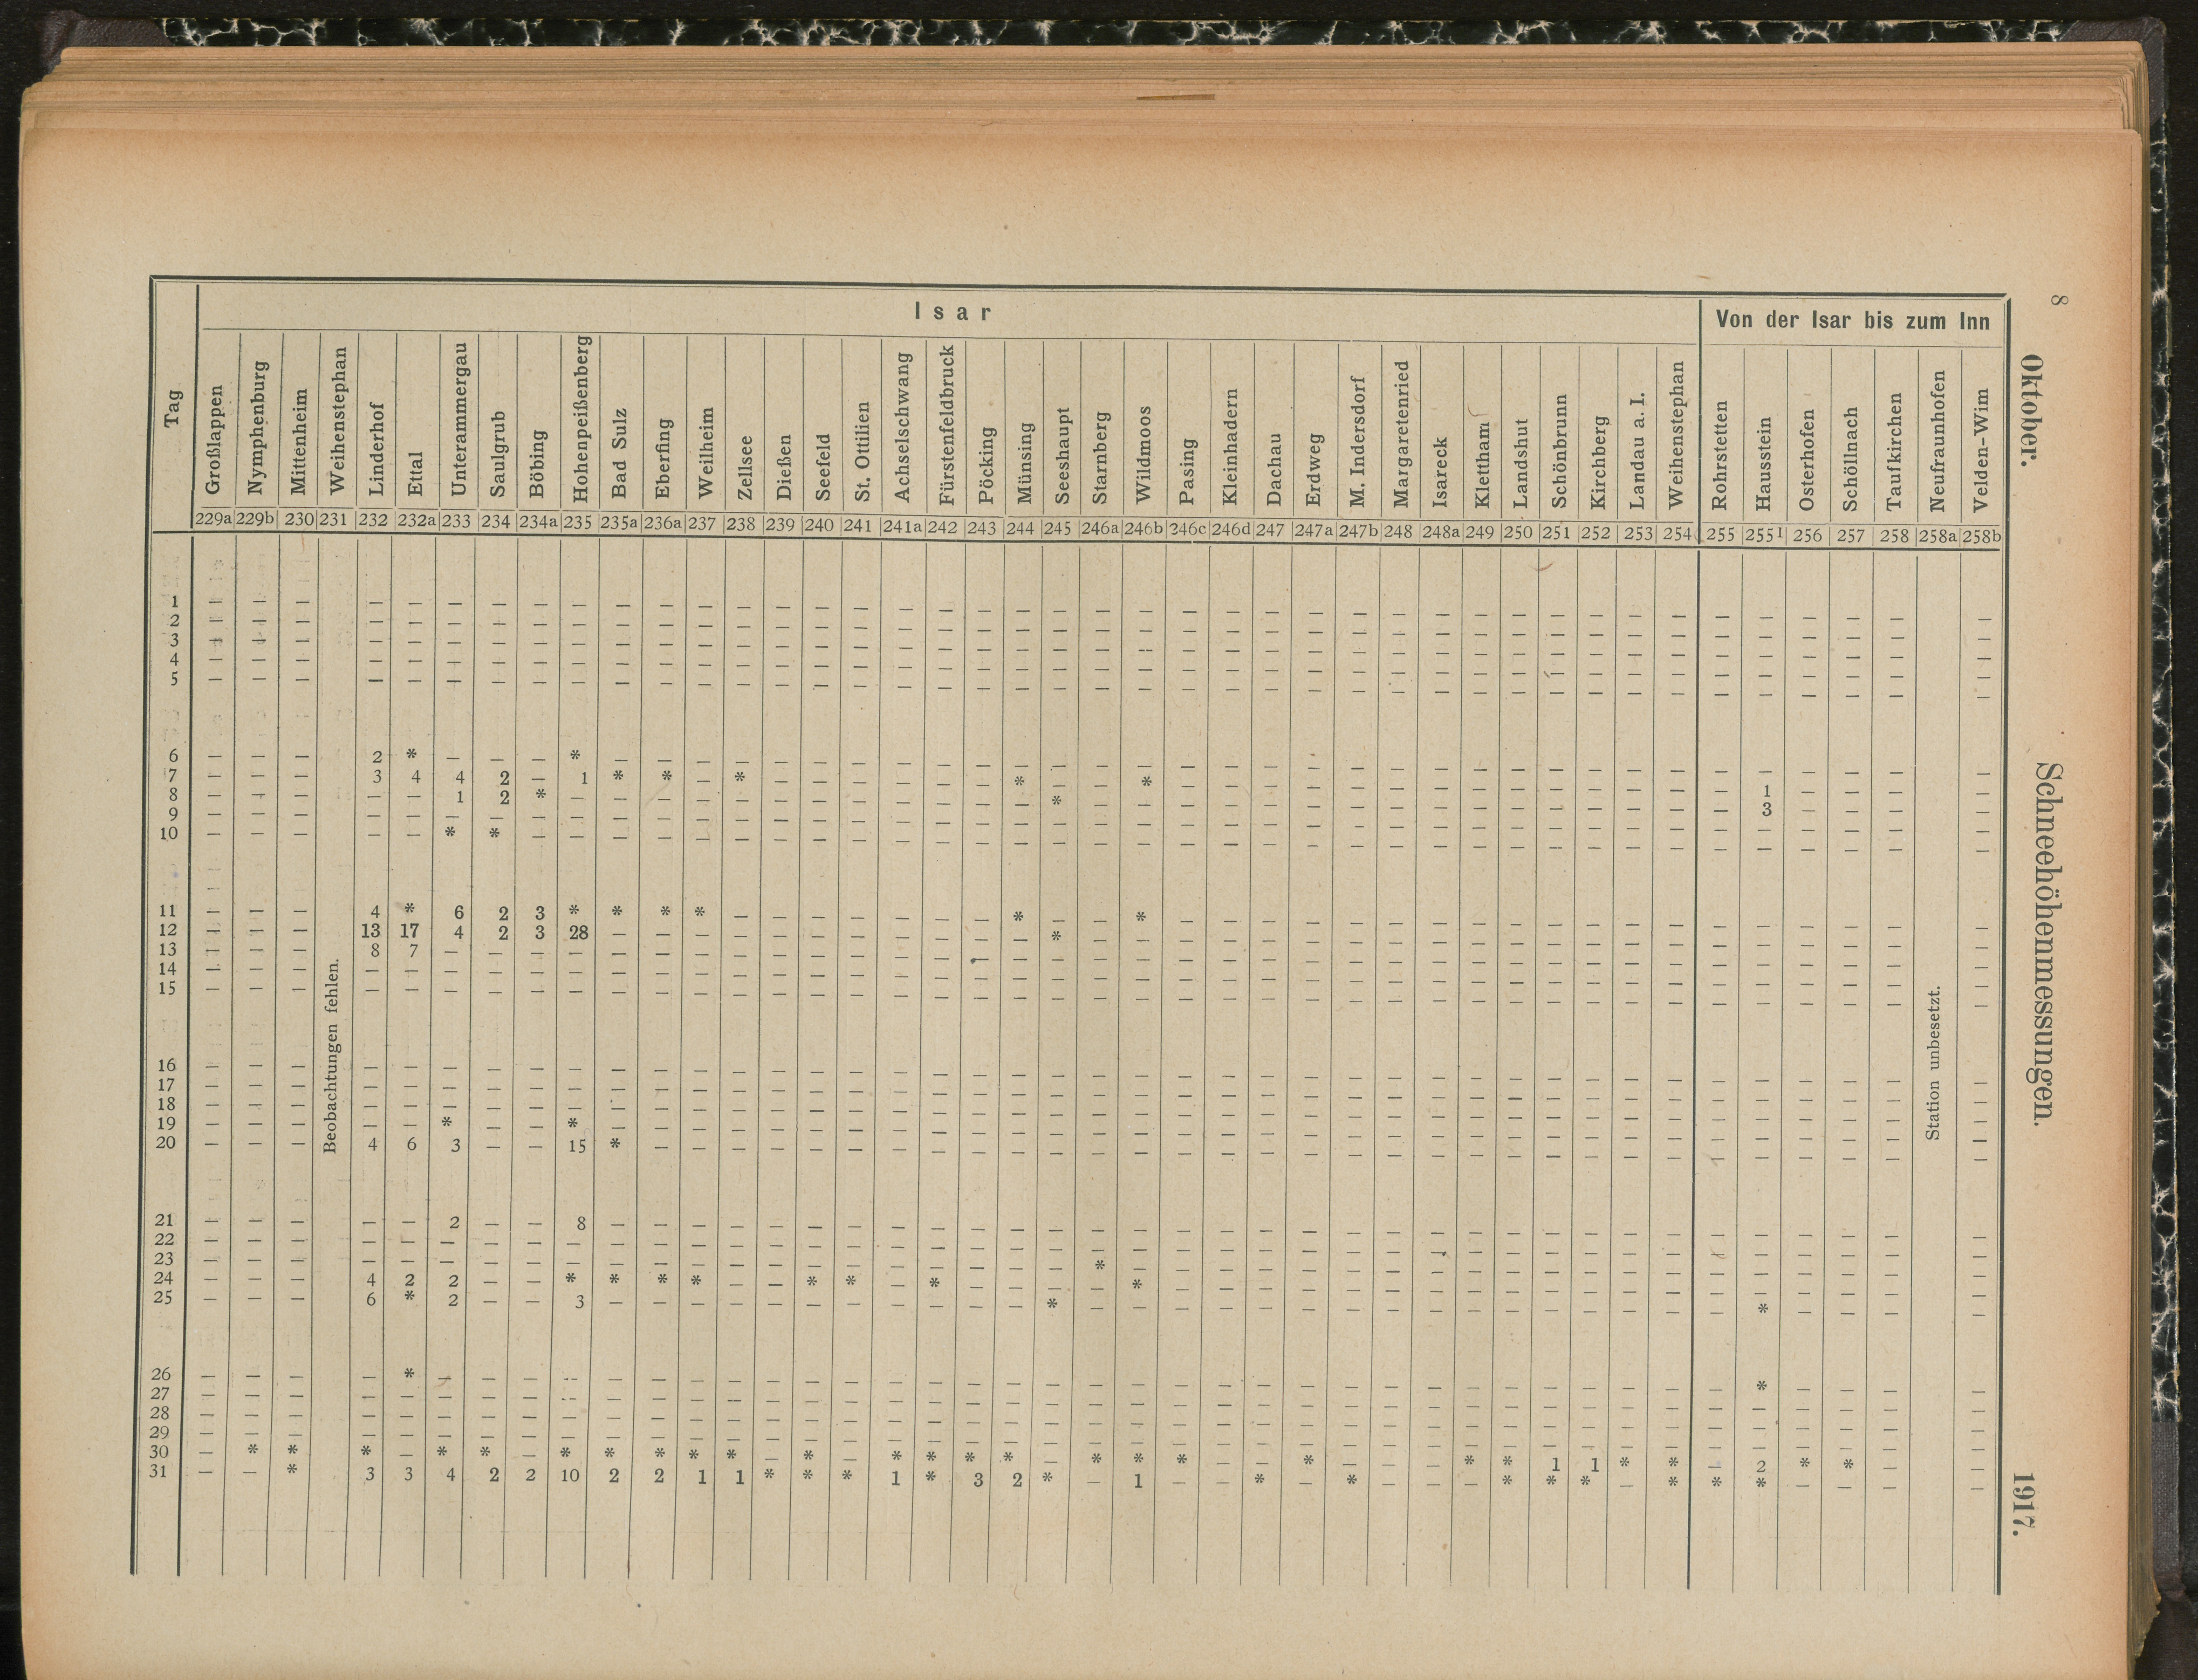 8
Oktober. Schneehöhenmessungen. 1917.
Tag Isar Von der Isar bis zum Inn
Großlappen Nymphenburg Mittenheim Weihenstephan Linderhof Ettal Unterammergau Saulgrub Böbing Hohenpeißenberg Bad Sulz Eberfing Weilheim Zellsee Dießen Seefeld St. Ottilien Achselschwang Fürstenfeldbruck Pöcking Münsing Seeshaupt Starnberg Wildmoos Pasing Kleinhadern Dachau Erdweg M. Indersdorf Margaretenried Isareck Klettham Landshut Schönbrunn Kirchberg Landau a. I. Weihenstephan Rohrstetten Hausstein Osterhofen Schöllnach Taufkirchen Neufraunhofen Velden-Wim
229a 229b 230 231 232 232a 233 234 234a 235 235a 236a 237 238 239 240 241 241a 242 243 244 245 246a 246b 246c 246d 247 247a 247b 248 248a 249 250 251 252 253 254 255 255I 256 257 258 258a 258b
1 — — — — — — — — — — — — — — — — — — — — — — — — — — — — — — — — — — — — — — — — — —
2 — — — — — — — — — — — — — — — — — — — — — — — — — — — — — — — — — — — — — — — — — —
3 — — — — — — — — — — — — — — — — — — — — — — — — — — — — — — — — — — — — — — — — — —
4 — — — — — — — — — — — — — — — — — — — — — — — — — — — — — — — — — — — — — — — — — —
5 — — — — — — — — — — — — — — — — — — — — — — — — — — — — — — — — — — — — — — — — — —
6 — — — 2 * — — — * — — — — — — — — — — — — — — — — — — — — — — — — — — — — — — — — —
7 — — — 3 4 4 2 — 1 * * — * — — — — — — * — — * — — — — — — — — — — — — — — 1 — — — —
8 — — — — — 1 2 * — — — — — — — — — — — — * — — — — — — — — — — — — — — — — 3 — — — —
9 — — — — — — — — — — — — — — — — — — — — — — — — — — — — — — — — — — — — — — — — — —
10 — — — — — * * — — — — — — — — — — — — — — — — — — — — — — — — — — — — — — — — — — —
11 — — — 4 * 6 2 3 * * * * — — — — — — — * — — * — — — — — — — — — — — — — — — — — — —
12 — — — 13 17 4 2 3 28 — — — — — — — — — — — * — — — — — — — — — — — — — — — — — — — — —
13 — — — 8 7 — — — — — — — — — — — — — — — — — — — — — — — — — — — — — — — — — — — — —
14 — — — — — — — — — — — — — — — — — — — — — — — — — — — — — — — — — — — — — — — — — —
15 — — — — — — — — — — — — — — — — — — — — — — — — — — — — — — — — — — — — — — — — — —
Beobachtungen fehlen.
Station unbesetzt.
16 — — — — — — — — — — — — — — — — — — — — — — — — — — — — — — — — — — — — — — — — — —
17 — — — — — — — — — — — — — — — — — — — — — — — — — — — — — — — — — — — — — — — — — —
18 — — — — — — — — — — — — — — — — — — — — — — — — — — — — — — — — — — — — — — — — — —
19 — — — — — * — — * — — — — — — — — — — — — — — — — — — — — — — — — — — — — — — — — —
20 — — — 4 6 3 — — 15 * — — — — — — — — — — — — — — — — — — — — — — — — — — — — — — — —
21 — — — — — 2 — — 8 — — — — — — — — — — — — — — — — — — — — — — — — — — — — — — — — —
22 — — — — — — — — — — — — — — — — — — — — — — — — — — — — — — — — — — — — — — — — — —
23 — — — — — — — — — — — — — — — — — — — — — * — — — — — — — — — — — — — — — — — — — —
24 — — — 4 2 2 — — * * * * — — * * — * — — — — * — — — — — — — — — — — — — — — — — — —
25 — — — 6 * 2 — — 3 — — — — — — — — — — — * — — — — — — — — — — — — — — — — * — — — —
26 — — — — * — — — — — — — — — — — — — — — — — — — — — — — — — — — — — — — — * — — — —
27 — — — — — — — — — — — — — — — — — — — — — — — — — — — — — — — — — — — — — — — — — —
28 — — — — — — — — — — — — — — — — — — — — — — — — — — — — — — — — — — — — — — — — — —
29 — — — — — — — — — — — — — — — — — — — — — — — — — — — — — — — — — — — — — — — — — —
30 — * * * — * * — * * * * * — * — * * * * — * * * — — * — — — * * 1 1 * * — 2 * * — —
31 — — * 3 3 4 2 2 10 2 2 1 1 * * * 1 * 3 2 * — 1 — — * — * — — — * * * — * * * — — — —